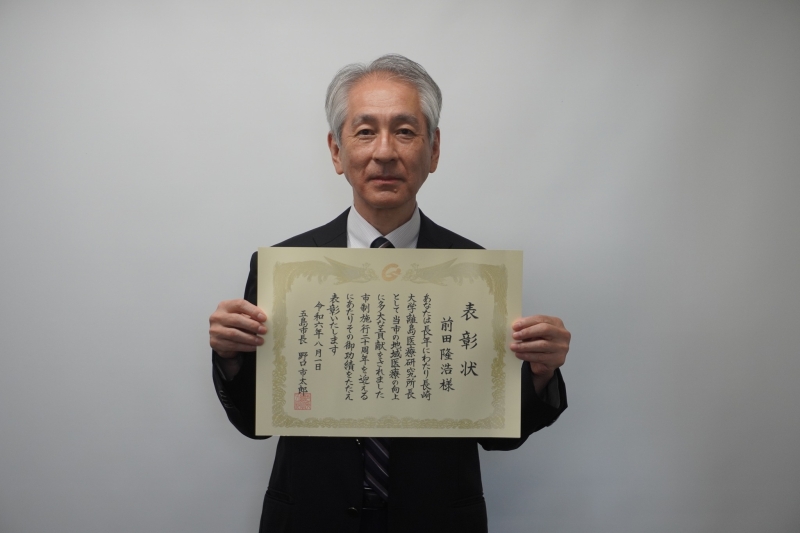 表彰状
前田隆浩様
あなたは長年にわたり長崎
大学離島医療研究所長
として当市の地域医療の向上
に多大な貢献をされました
市制施行二十周年を迎える
にあたりその御功績をたたえ
表彰いたします
令和六年八月一日
五島市長 野口市太郎